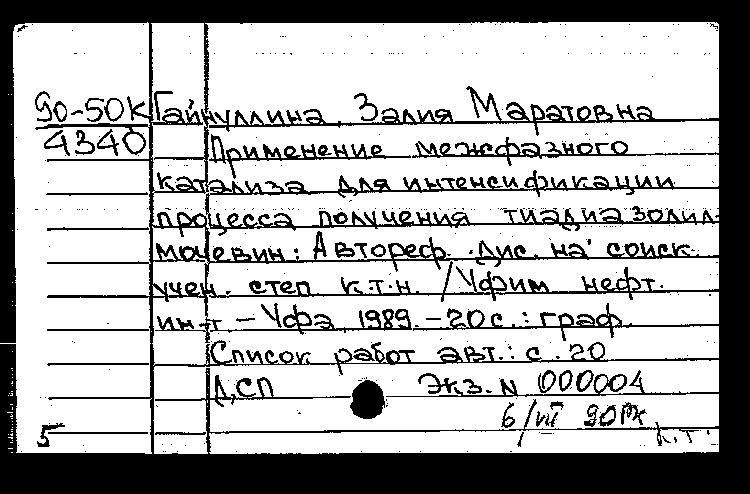 90-50К Гайнуллина, Залия Маратовна
4340 Применение межфазного
катализа для интенсификации
процесса получения тиадиазолил-
мочевин: Автореф. дис. на соиск.
учен. степ к.т.н. /Уфим нефт.
ин-т – Уфа, 1989. – 20 с.: граф.
Список работ авт.: с. 20
ДСП Экз. N 000004
6/VII 90
5 к.т.